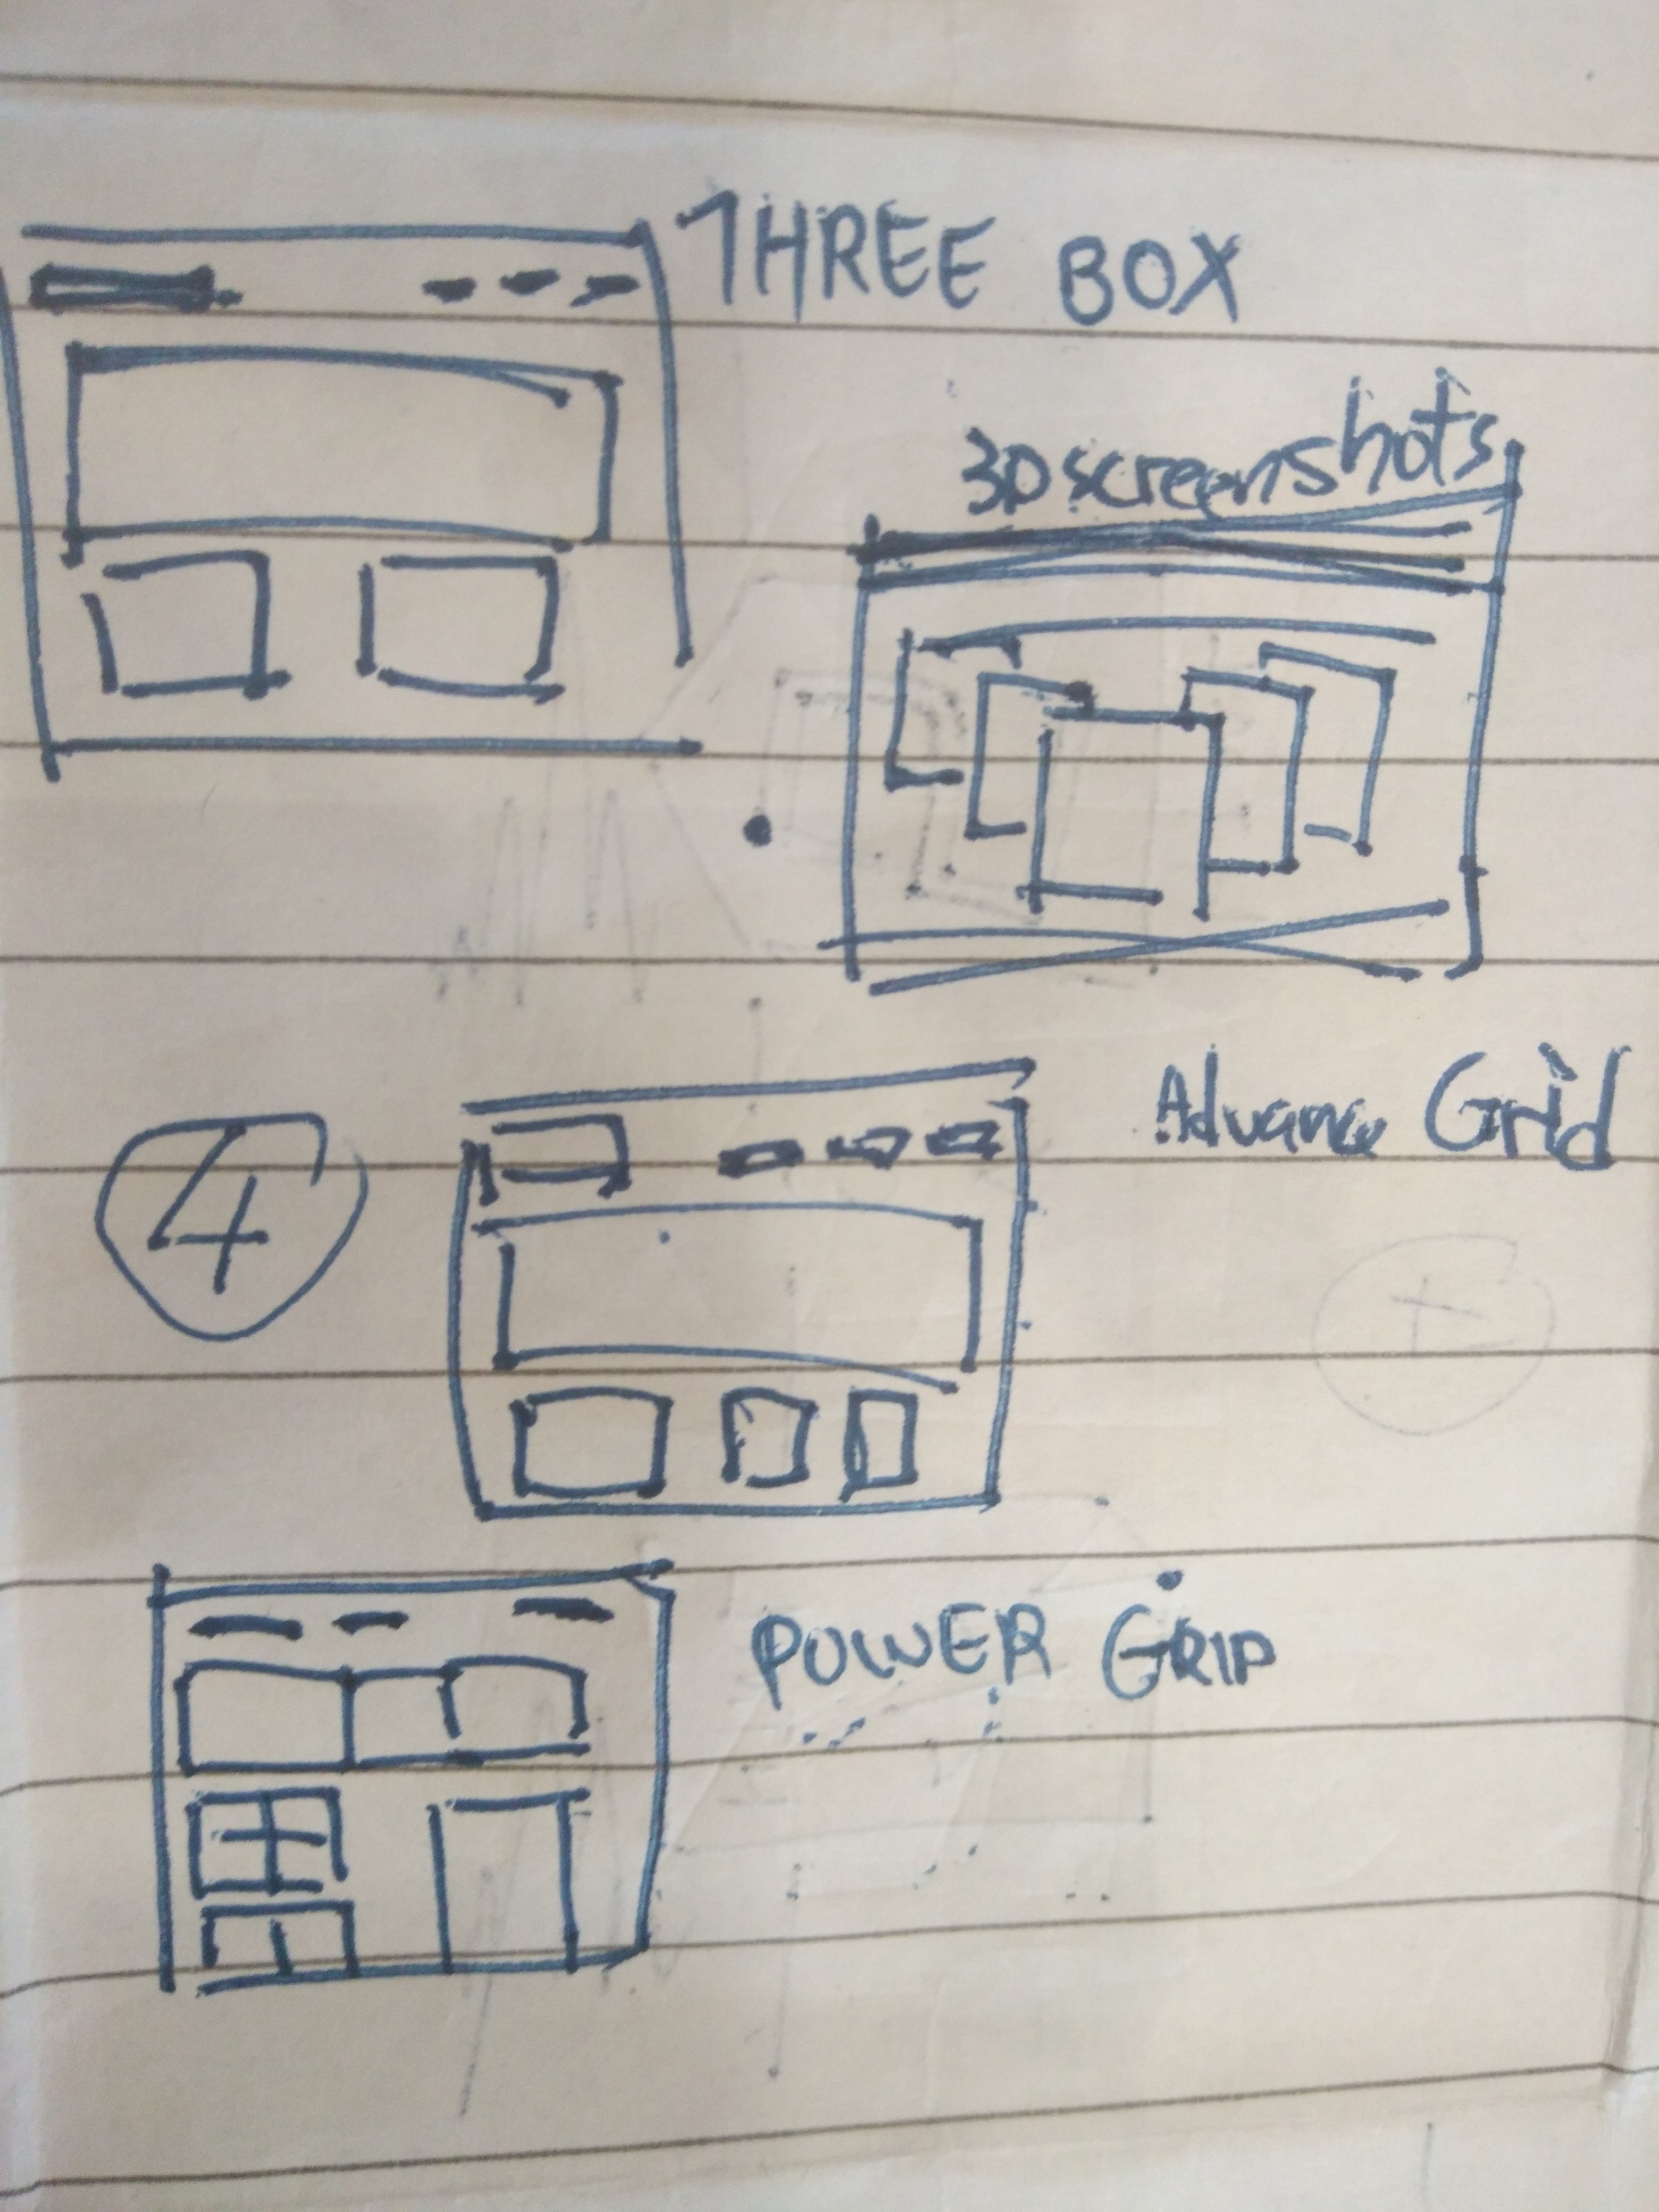 THREE BOX
3D screenshots
4
Advance Grid
POWER GRID